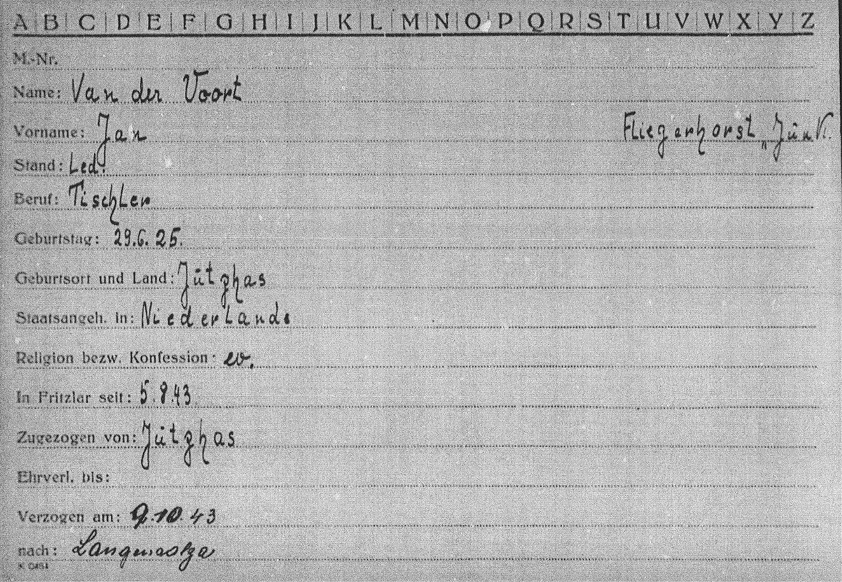 A|B|C|D|E|F|G|H|I|J|K|L|M|N|O|P|Q|R|S|T|U|V|W|X|Y|Z
M.-Nr.
Name: Van der Voort
Vorname: Jan Fliegerhorst
Stand: Led.
Beruf: Tischler
Geburtstag: 29.6.25.
Geburtsort und Land: Jütghas
Staatsangeh. in: Niederlande
Religion bezw. Konfession: ev.
In Fritzlar seit: 5.8.43
Zugezogen von: Jütghas
Ehrverl. bis:
Verzogen am: 9.10.43
nach: